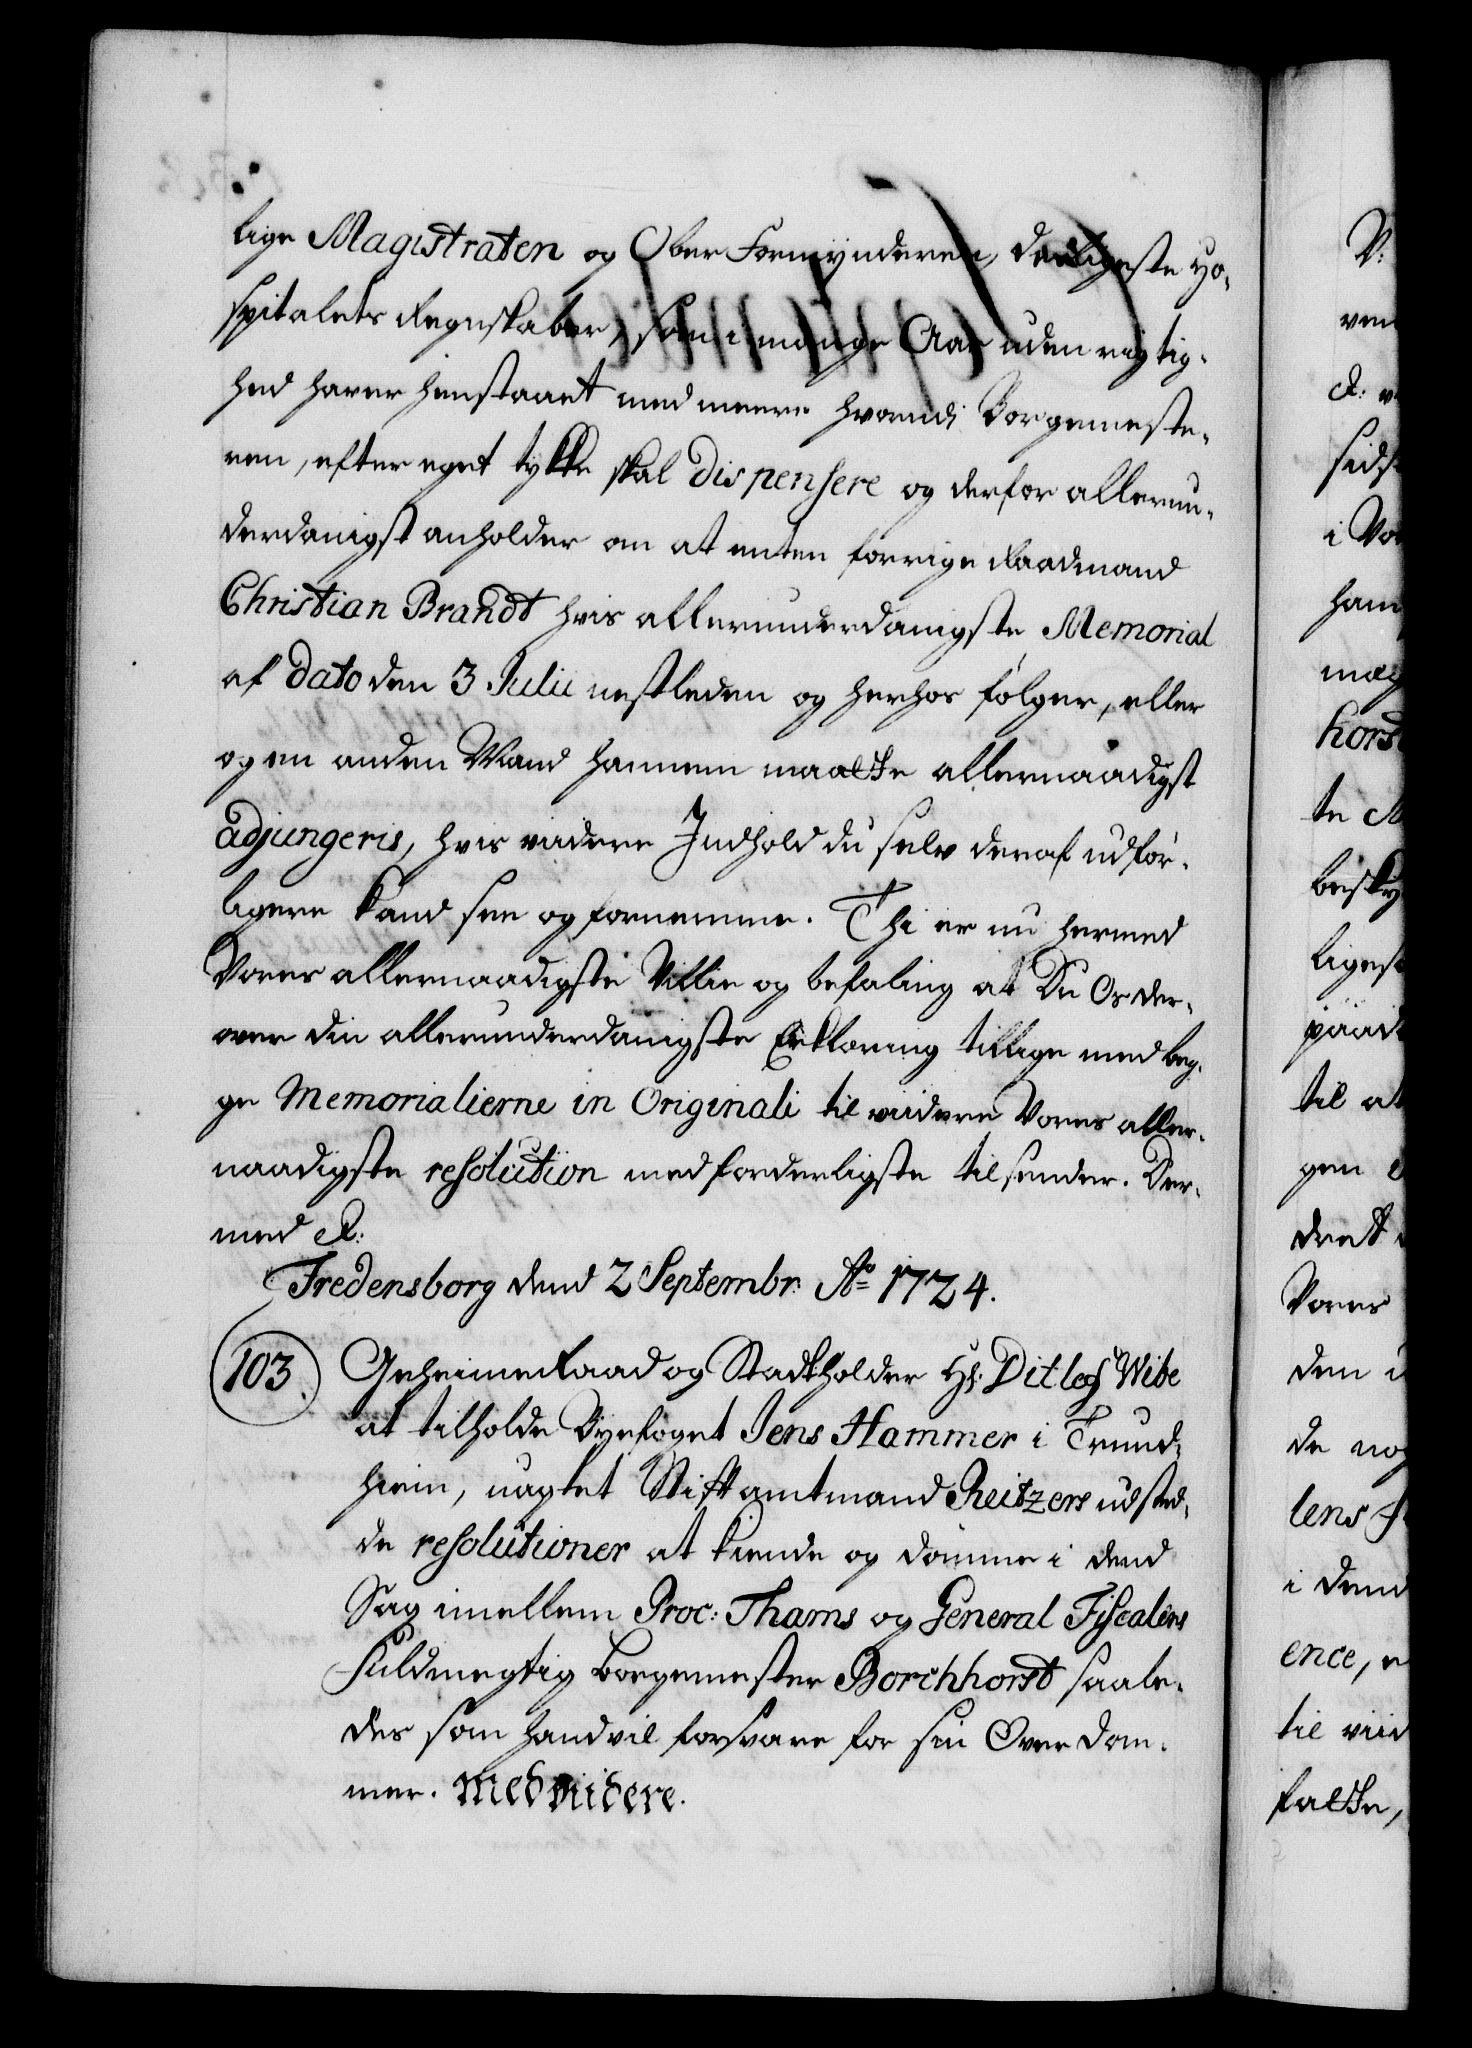 lige Magistraten og Ober Formynderen, desligeste Ho-
spitalets Regnskaber, som i mange Aar uden rigtig-
hed haver henstaaet med meere hvorudi Borgemeste-
ren, efter eget tykke skal dispensere og derfor allerun-
derdanigst anholder om at enten forrige Raadmand
Christian Brandt hvis allerunderdanigste Memorial
af dato den 3 Julii nestleden og herhos følger, eller
og en anden Mand hannem maatte allernaadigst
adjungeris, hvis viidere Indhold du selv deraf udfør-
ligere kand see og fornemme. Thi er nu hermed
Vores allernaadigste Villie og befaling at Du Os der-
over din allerunderdanigste Erklæring tillige med beg-
ge Memorialierne in Originali til viidere Vores aller-
naadigste resolution med forderligste tilsender. Der-
med &:
Fredensborg dend 2 Septembr: Ao 1724.
103. Geheime Raad og Stadtholder Hr: Ditlef Wibe
at tilholde Byefoget Jens Hammer i Trund-
hiem, uagtet Stiftamtmand Reitzers udsted-
de resolutioner at kiende og dømme i dend
Sag imellem Proc: Thams og General Fiscalens
Fuldmegtig Borgemester Borchhorst saale-
des som hand vil forsvare for sin Over Dom-
mer. Med viidere.
V:
ven
&: v
sidst
i Vor
ham
mæg
horst
te M
besky
ligest
paad
til at
gen
drett
Vores
den i
de nog
lens F
i dend
ence, e
til viid
fatte,